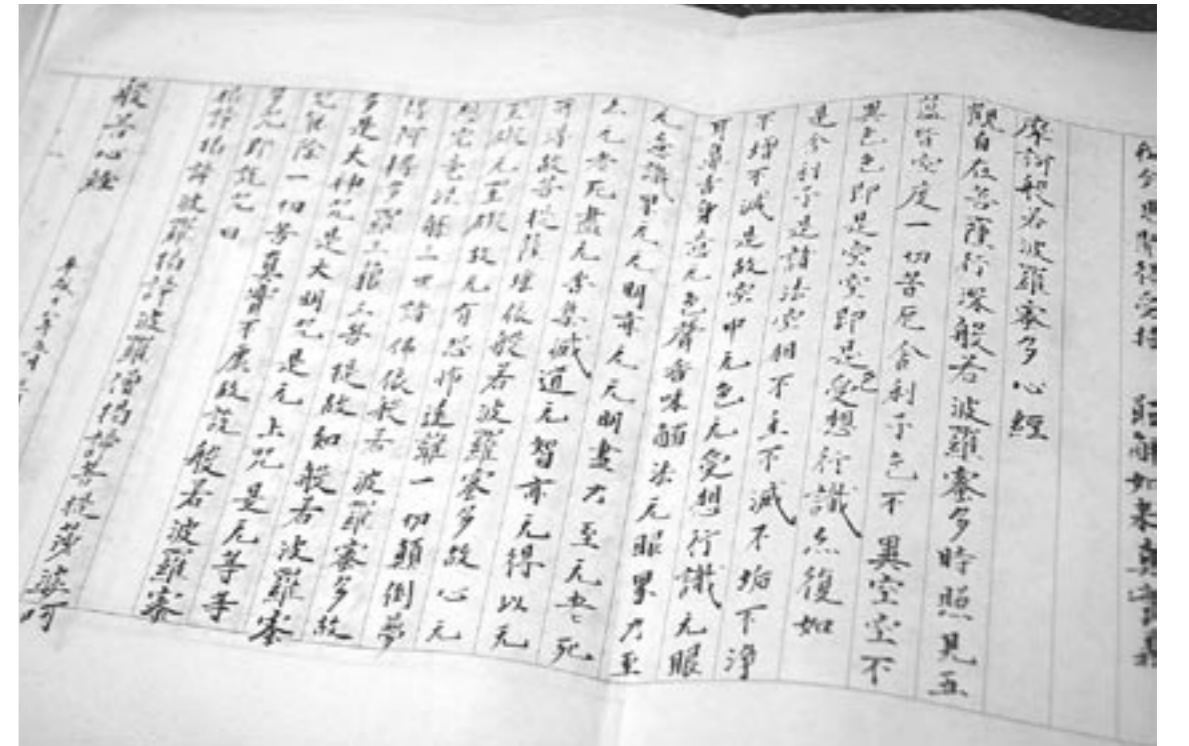 我今見聞得受持 願解如来真實義
摩訶般若波羅蜜多心經
觀自在菩薩行深般若波羅蜜多時照見五
蘊皆空度一切苦厄舍利子色不異空空不
異色色即是空空即是色受想行識亦復如
是舍利子是諸法空相不生不滅不垢不淨
不増不減是故空中无色无受想行識无眼
耳鼻舌身意无色聲香味觸法无眼界乃至
无意識界无无明亦无无明盡乃至无老死
亦无老死盡无苦集滅道无智亦无得以无
所得故菩提薩埵依般若波羅蜜多故心无
罣礙无罣礙故无有恐怖遠離一切顛倒夢
想究竟涅槃三世諸佛依般若波羅蜜多故
得阿耨多羅三藐三菩提故知般若波羅蜜
多是大神咒是大明咒是无上咒是无等等
咒能除一切苦真實不虛故説般若波羅蜜
多咒即説咒曰
羯諦羯諦波羅羯諦波羅僧羯諦菩提莎婆訶
般若心經
平成十八年五月